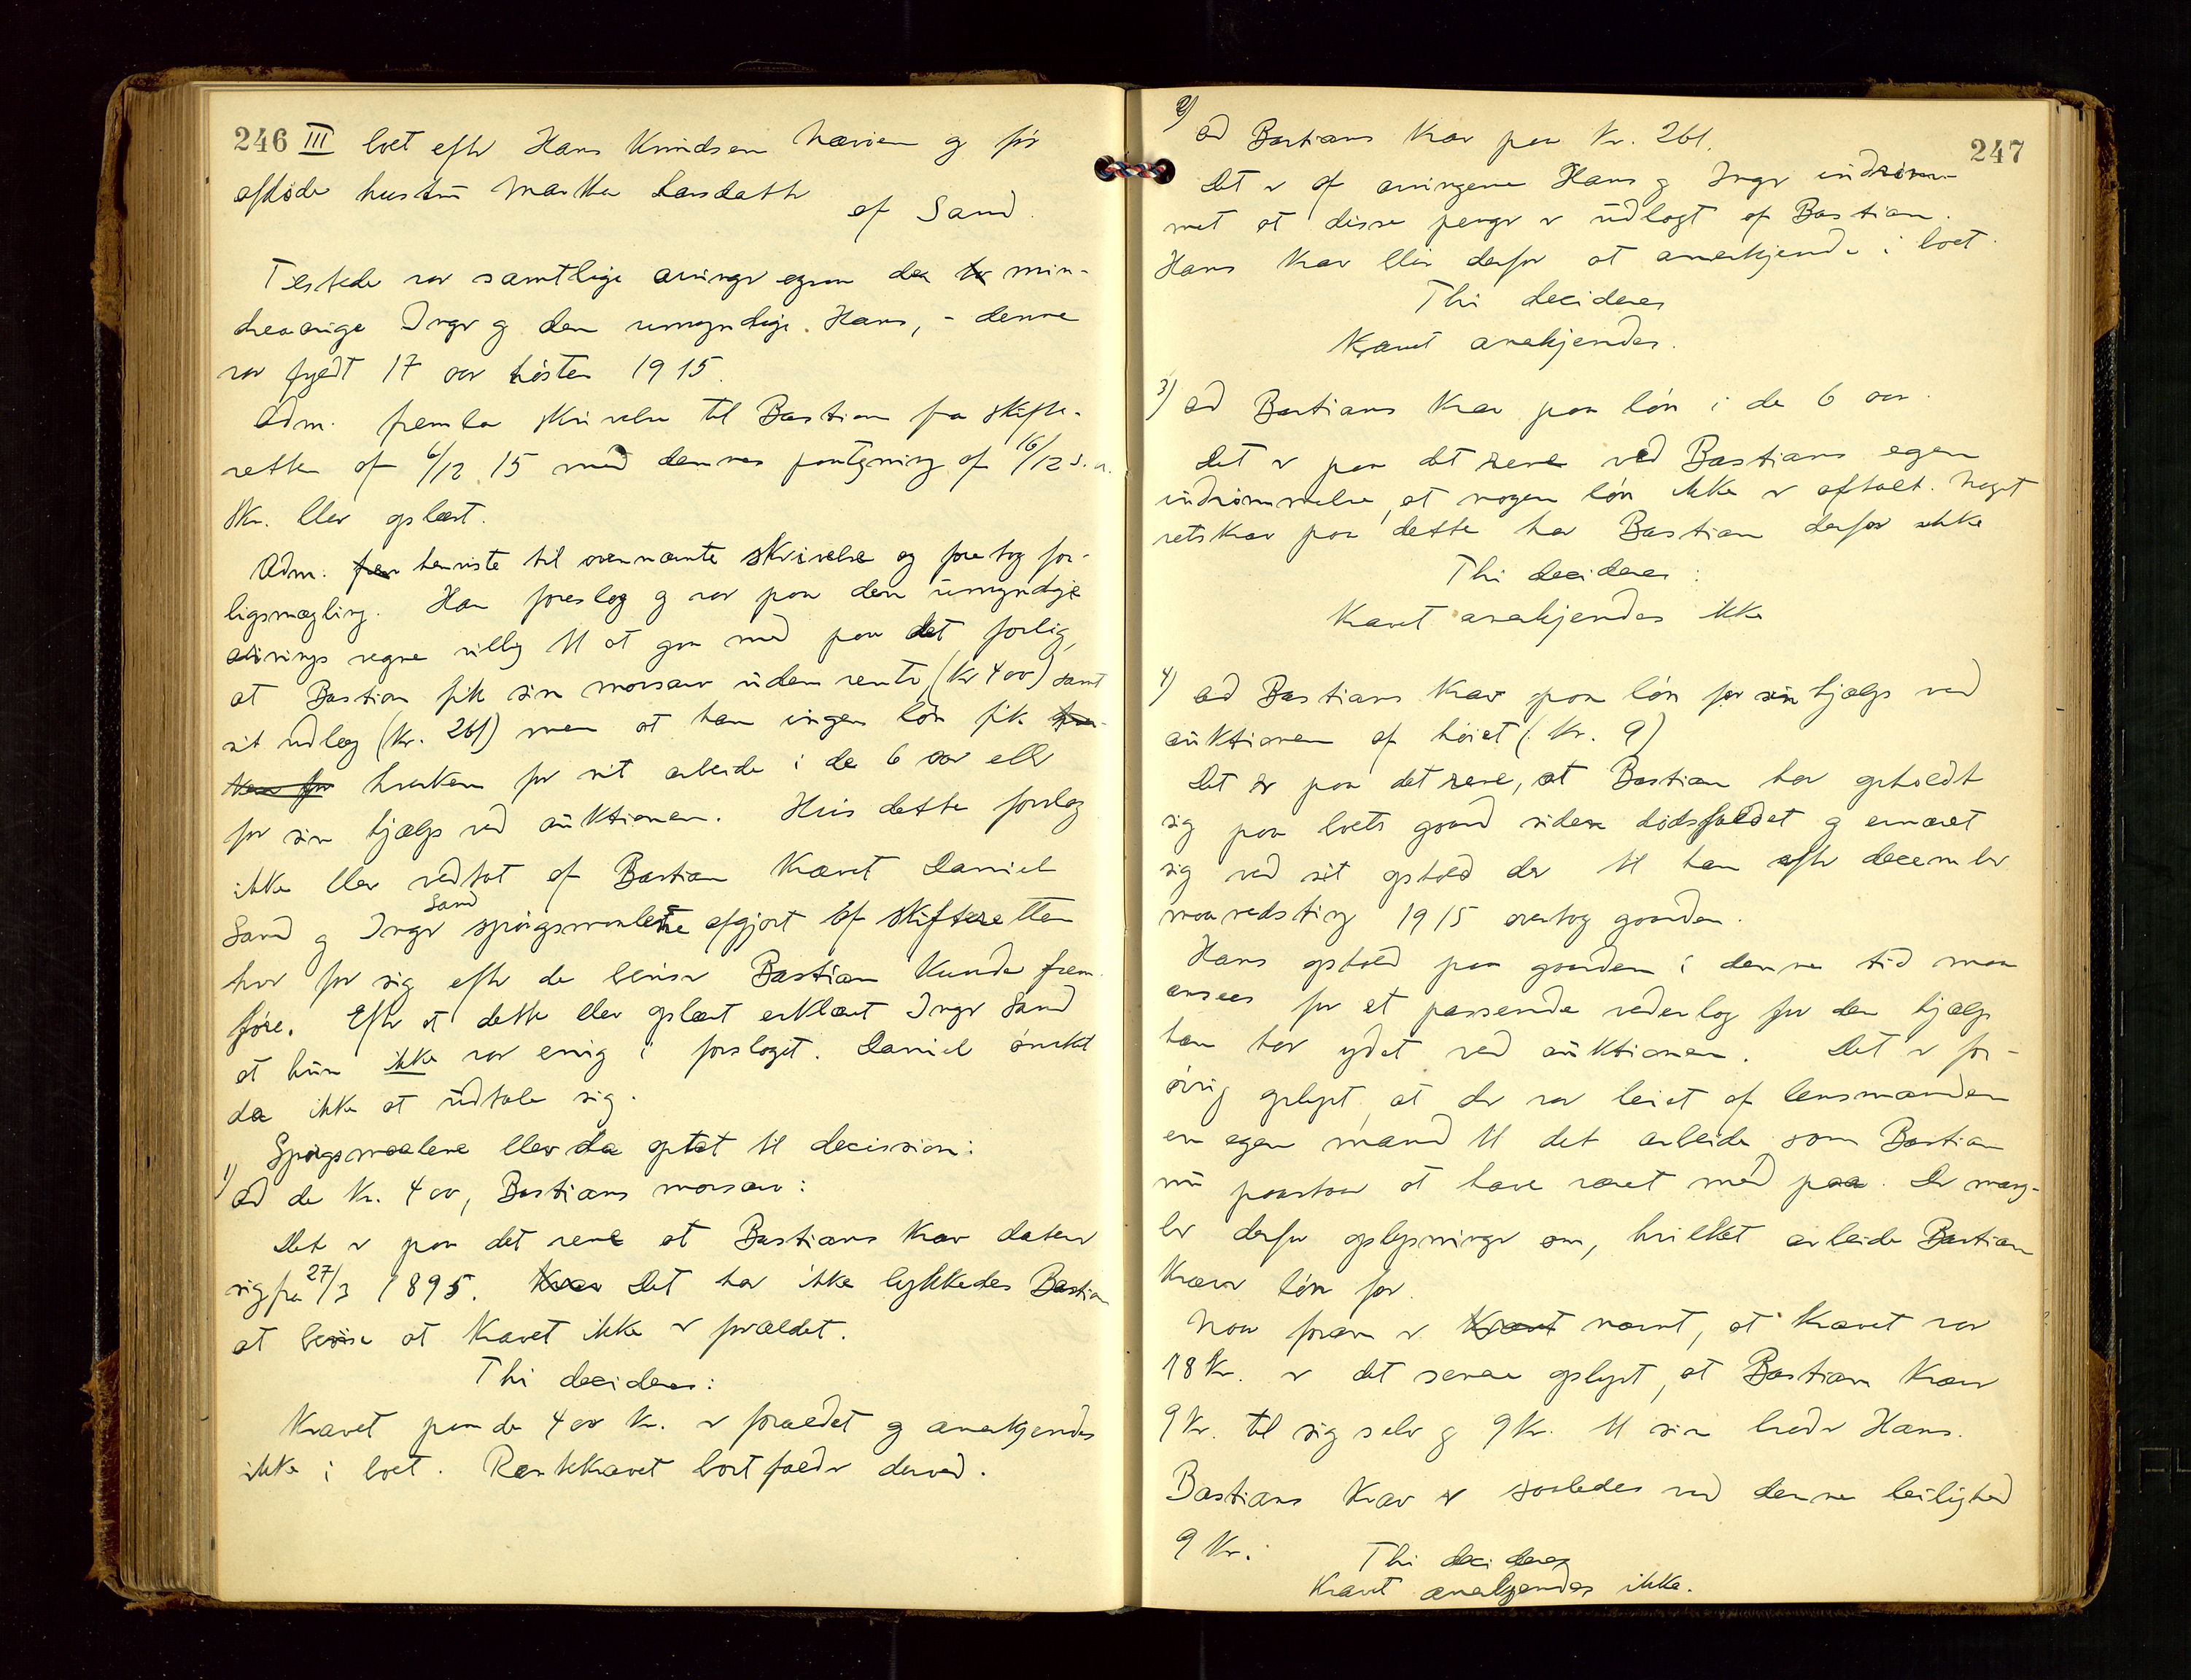 246 III boet efter Hans Knudsen Nærøen og før
afdøde hustru Martha Larsdatter
af Sand.
Tilstede var samtlige arvinger ogsaa den min-
dreaarige Inger og den umyndige Hans, - denne
var fyldt 17 aar høsten 1915.
Adm. fremla skrivelse til Bastian fra skifte-
retten af 6/12 15 med dennes paategning af 16/12 s. a.
Skr. blev oplæst.
Adm. henviste til ovennævnte skrivelse og foretog for-
ligsmægling. Han foreslog og var paa den umyndige
arvings vegne villig til at gaa med paa det forlig,
at Bastian fik sin morsarv uden rente (Kr 400) samt
sit udlæg (Kr. 261) men at han ingen løn fik
hverken for sit arbeide i de 6 aar eller
for sin hjælp ved auktionen. Hvis dette forslag
ikke blev vedtat af Bastian krævet Daniel
Sand og Inger Sand spørgsmaalene afgjort af skifteretten
hver for sig efter de beviser Bastian kunde frem-
føre. Efter at dette blev oplæst erklæret Inger Sand
at hun ikke var enig i forslaget. Daniel ønsket
da ikke at udtale sig.
Spørgsmaalene blev da optat til decission:
1) ad de Kr. 400, Bastians morsarv:
Det er paa det rene at Bastians krav daterer
sig fra 27/3 1895. Det har ikke lykkedes Bastian
at bevise at kravet ikke er forældet.
Thi decideres:
Kravet paa de 400 Kr. er forældet og anerkjendes
ikke i boet. Rentekravet bortfalder derved.
247
2) ad Bastians krav paa Kr. 261.
Det er af arvingerne Hans og Inger indrøm-
met at disse penge er udlagt af Bastian.
Hans krav blir derfor at anerkjende i boet.
Thi decideres
Kravet anerkjendes.
3) ad Bastians krav paa løn i de 6 aar.
Det er paa det rene ved Bastians egen
indrømmelse, at nogen løn ikke er aftalt. Noget
retskrav paa dette har Bastian derfor ikke
Thi decideres:
Kravet anerkjendes ikke
4) ad Bastians krav paa løn for sin hjælp ved
auktionen af høiet (Kr. 9)
Det er paa det rene, at Bastian har opholdt
sig paa boets gaard siden dødsfaldet og ernæret
sig ved sit ophold der til han efter december
maanedsting 1915 overtog gaarden.
Hans ophold paa gaarden i denne tid maa
ansees for et passende vederlag for den hjælp
han har ydet ved auktionen. Det er for-
øvrig oplyst, at der var leiet af lensmanden
en egen mand til det arbeide som Bastian
nu paastaar at have været med paa. Der mang-
ler derfor oplysninger om, hvilket arbeide Bastian
kræver løn for.
Naar foran er nævnt, at kravet var
18 Kr. er det senere oplyst, at Bastian kræver
9 Kr. til sig selv og 9 Kr. til sin broder Hans.
Bastians krav er saaledes ved denne leilighed
9 Kr.
Thi decideres
Kravet anerkjendes ikke.